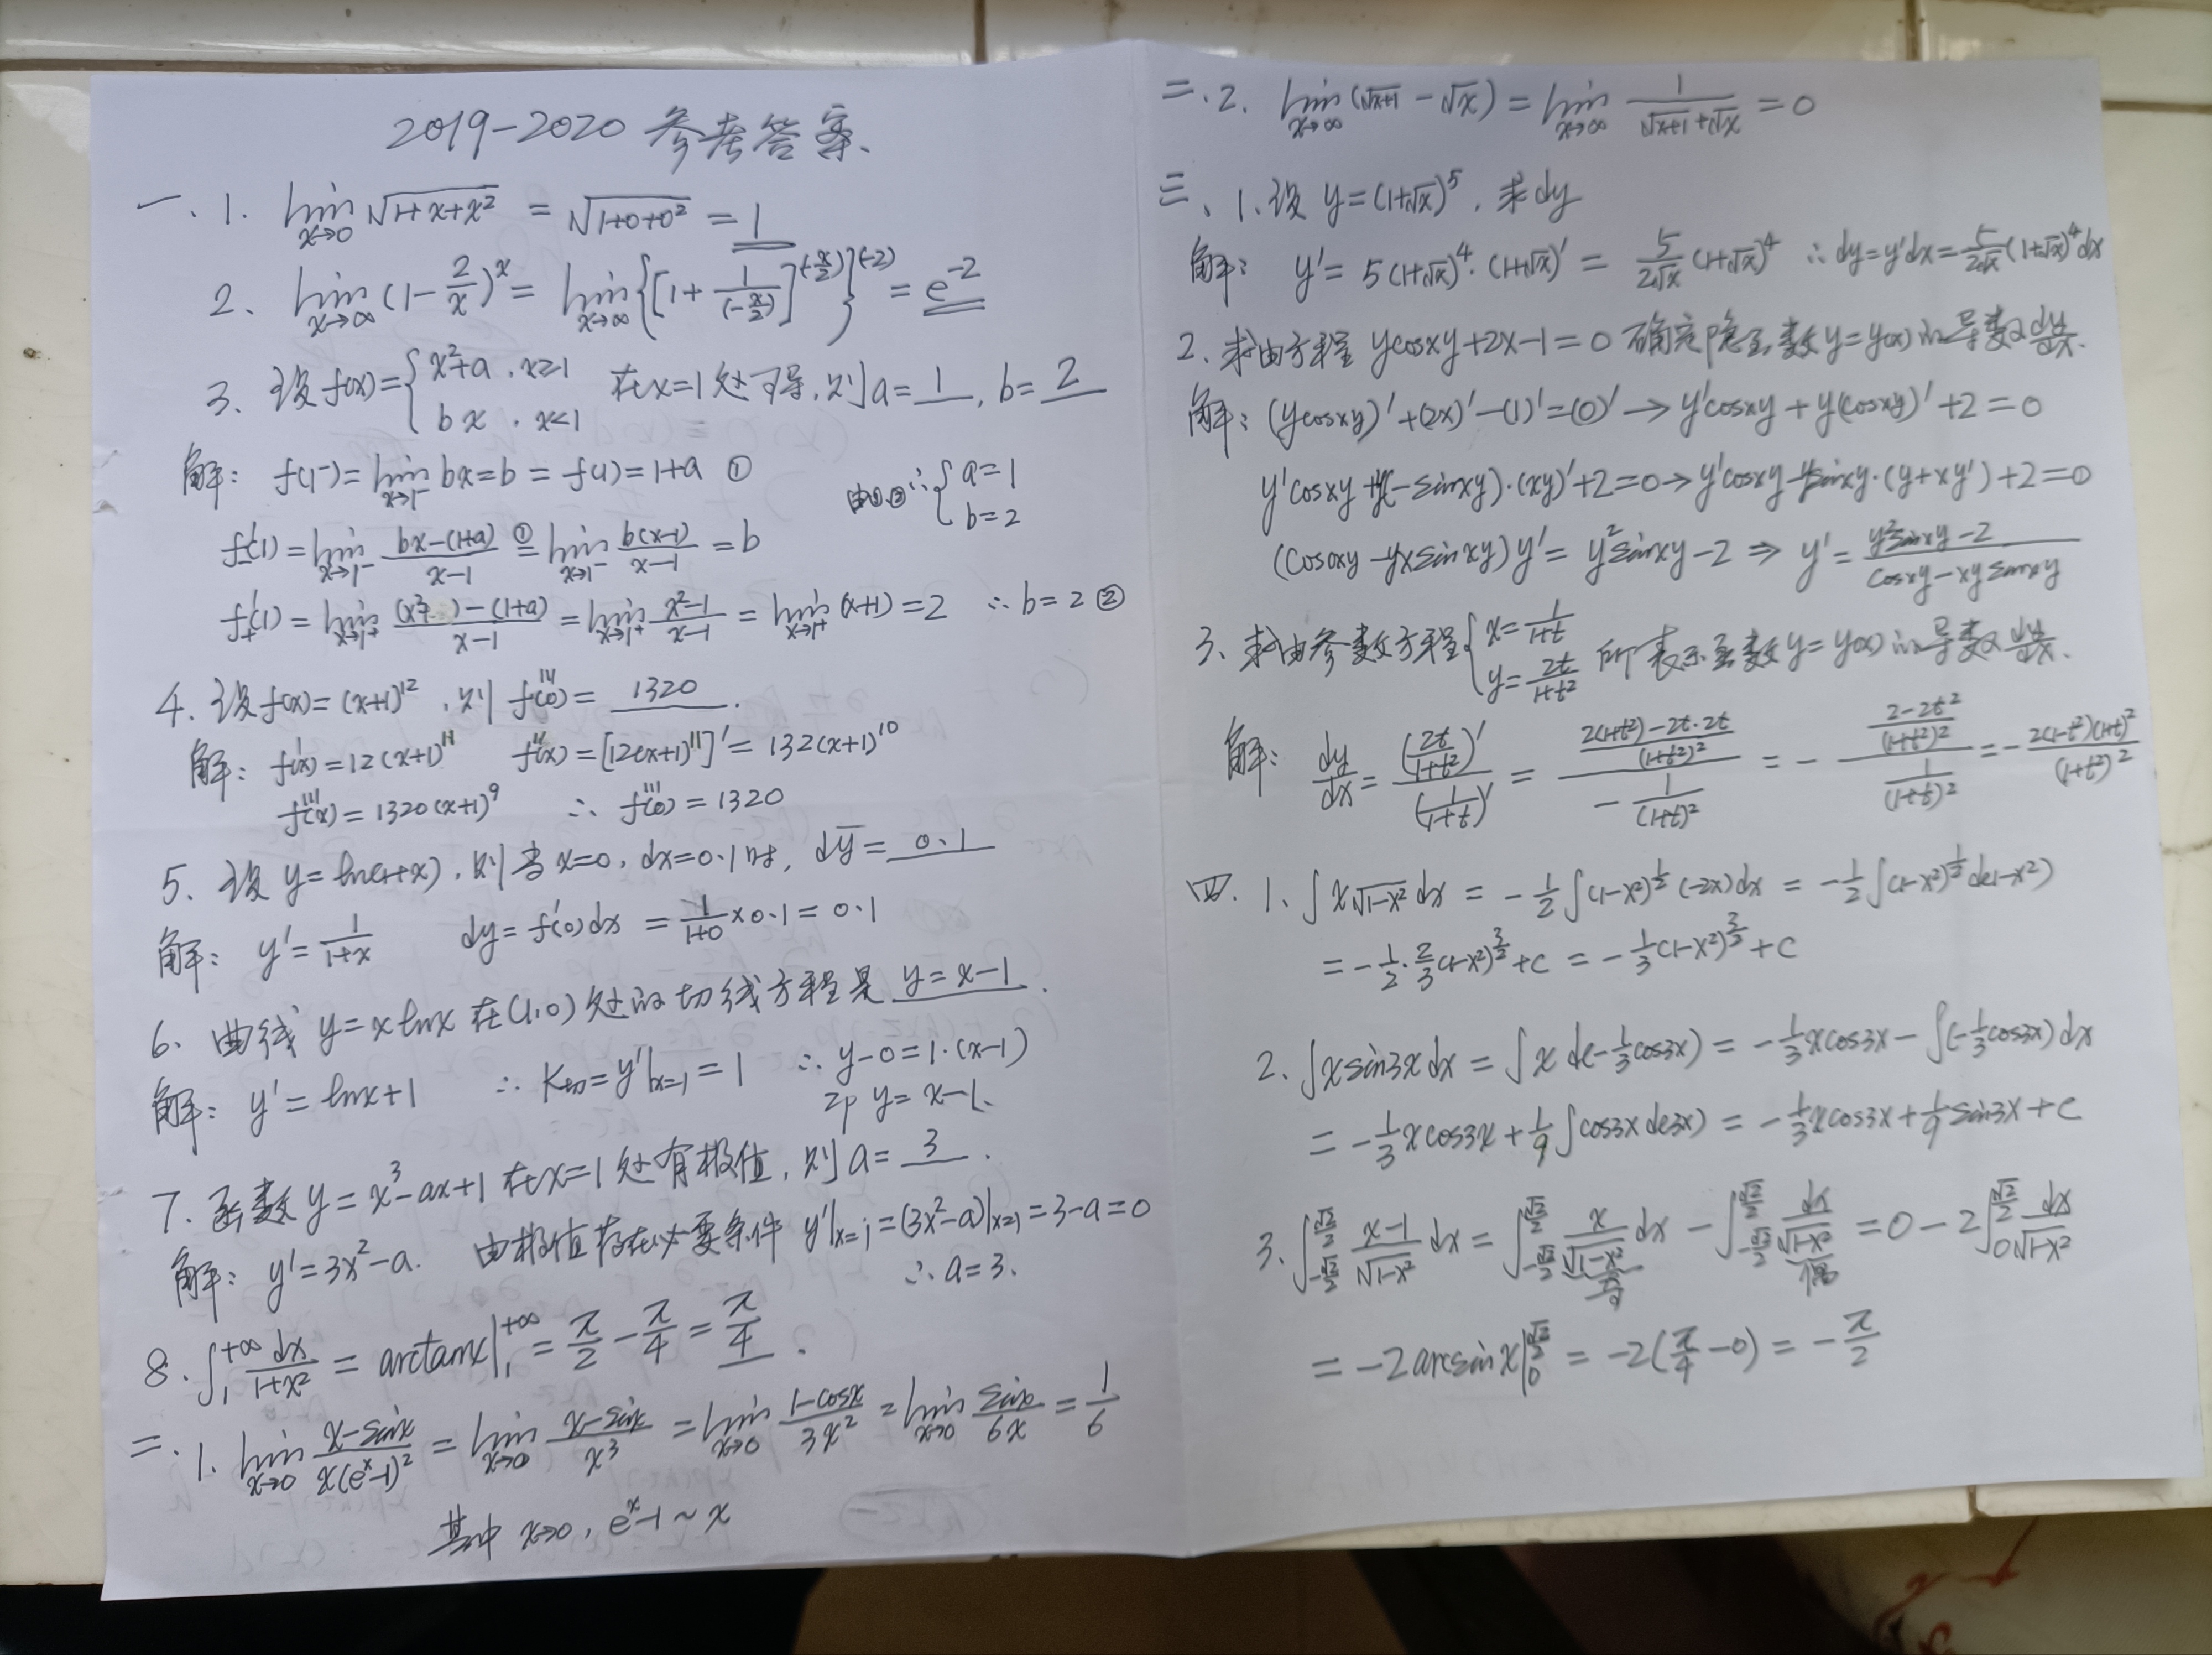 2019-2020 参考答案.
一. 1. lim_{x→0} √(1+x+x²) = √(1+0+0²) = 1
2. lim_{x→∞} (1-2/x)^x = lim_{x→∞} {[1+1/(-x/2)]^(-x/2)}^(-2) = e^-2
3. 设 f(x)={x²+a, x≥1; bx, x<1 在x=1处可导,则a=1, b=2
解: f(1⁻)=lim_{x→1⁻} bx=b=f(1)=1+a ① 由①②∴{a=1; b=2
f₋'(1)=lim_{x→1⁻} (bx-(1+a))/(x-1) ①= lim_{x→1⁻} b(x-1)/(x-1) = b
f₊'(1)=lim_{x→1⁺} ((x²+ )-(1+a))/(x-1) = lim_{x→1⁺} (x²-1)/(x-1) = lim_{x→1⁺} (x+1)=2 ∴b=2 ②
4. 设f(x)=(x+1)^12, 则 f'''(0)=1320.
解: f'(x)=12(x+1)^11 f''(x)=[12(x+1)^11]'=132(x+1)^10
f'''(x)=1320(x+1)^9 ∴ f'''(0)=1320
5. 设 y=ln(1+x), 则当 x=0, dx=0.1时, dy=0.1
解: y'=1/(1+x) dy=f'(0)dx = 1/(1+0)×0.1=0.1
6. 曲线 y=xlnx 在(1,0)处的切线方程是 y=x-1.
解: y'=lnx+1 ∴ K切=y'|x=1=1 ∴ y-0=1·(x-1)
即 y=x-1.
7. 函数 y=x³-ax+1 在x=1处有极值, 则a=3.
解: y'=3x²-a. 由极值存在必要条件 y'|x=1=(3x²-a)|x=1=3-a=0
∴a=3.
8. ∫₁^{+∞} dx/(1+x²) = arctanx|₁^{+∞} = π/2 - π/4 = π/4.
二. 1. lim_{x→0} (x-sinx)/(x(e^x-1)²) = lim_{x→0} (x-sinx)/x³ = lim_{x→0} (1-cosx)/(3x²) = lim_{x→0} sinx/(6x) = 1/6
其中 x→0, e^x-1~x
二.2. lim_{x→∞} (√(x+1)-√x) = lim_{x→∞} 1/(√(x+1)+√x) = 0
三、1. 设 y=(1+√x)^5, 求dy
解: y'=5(1+√x)^4·(1+√x)' = 5/(2√x) (1+√x)^4 ∴dy=y'dx=5/(2√x) (1+√x)^4dx
2. 求由方程 ycosxy+2x-1=0 确定隐函数y=y(x)的导数dy/dx.
解: (ycosxy)'+(2x)'-(1)'=(0)' → y'cosxy+y(cosxy)'+2=0
y'cosxy+y(-sinxy)·(xy)'+2=0 → y'cosxy-ysinxy·(y+xy')+2=0
(cosxy-yxsinxy)y'=y²sinxy-2 ⇒ y'=(y²sinxy-2)/(cosxy-xysinxy)
3. 求由参数方程{x=1/(1+t); y=2t/(1+t²) 所表示函数y=y(x)的导数dy/dx.
解: dy/dx = (2t/(1+t²))'/(1/(1+t))' = ((2(1+t²)-2t·2t)/(1+t²)²)/(-1/(1+t)²) = -((2-2t²)/(1+t²)²)/(1/(1+t)²) = -2(1-t²)(1+t)²/(1+t²)²
四. 1. ∫x√(1-x²)dx = -1/2∫(1-x²)^(1/2)(-2x)dx = -1/2∫(1-x²)^(1/2)d(1-x²)
= -1/2·2/3(1-x²)^(3/2)+c = -1/3(1-x²)^(3/2)+c
2. ∫xsin3xdx = ∫x d(-1/3cos3x) = -1/3xcos3x-∫(-1/3cos3x)dx
= -1/3xcos3x+1/9∫cos3xd(3x) = -1/3xcos3x+1/9sin3x+c
3. ∫_{-√2/2}^{√2/2} (x-1)/√(1-x²) dx = ∫_{-√2/2}^{√2/2} x/√(1-x²) dx - ∫_{-√2/2}^{√2/2} dx/√(1-x²) = 0-2∫_0^{√2/2} dx/√(1-x²)
奇 偶
= -2arcsinx|_0^{√2/2} = -2(π/4-0) = -π/2